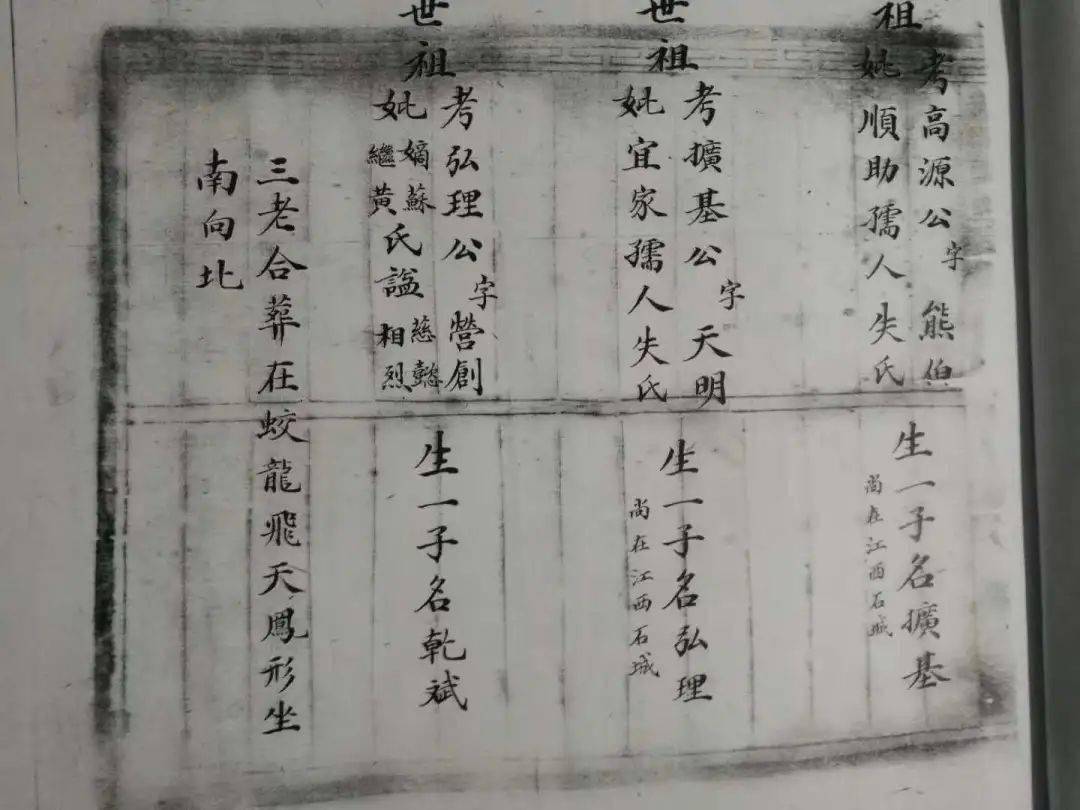 祖
考高源公字熊伯
妣順助孺人失氏
生一子名擴基
尚在江西石城
世祖
考擴基公字天明
妣宜家孺人失氏
生一子名弘理
尚在江西石城
世祖
考弘理公字營創
妣嫡蘇繼黃氏謚慈懿相烈
生一子名乾斌
三老合葬在蛟龍飛天鳳形坐
南向北